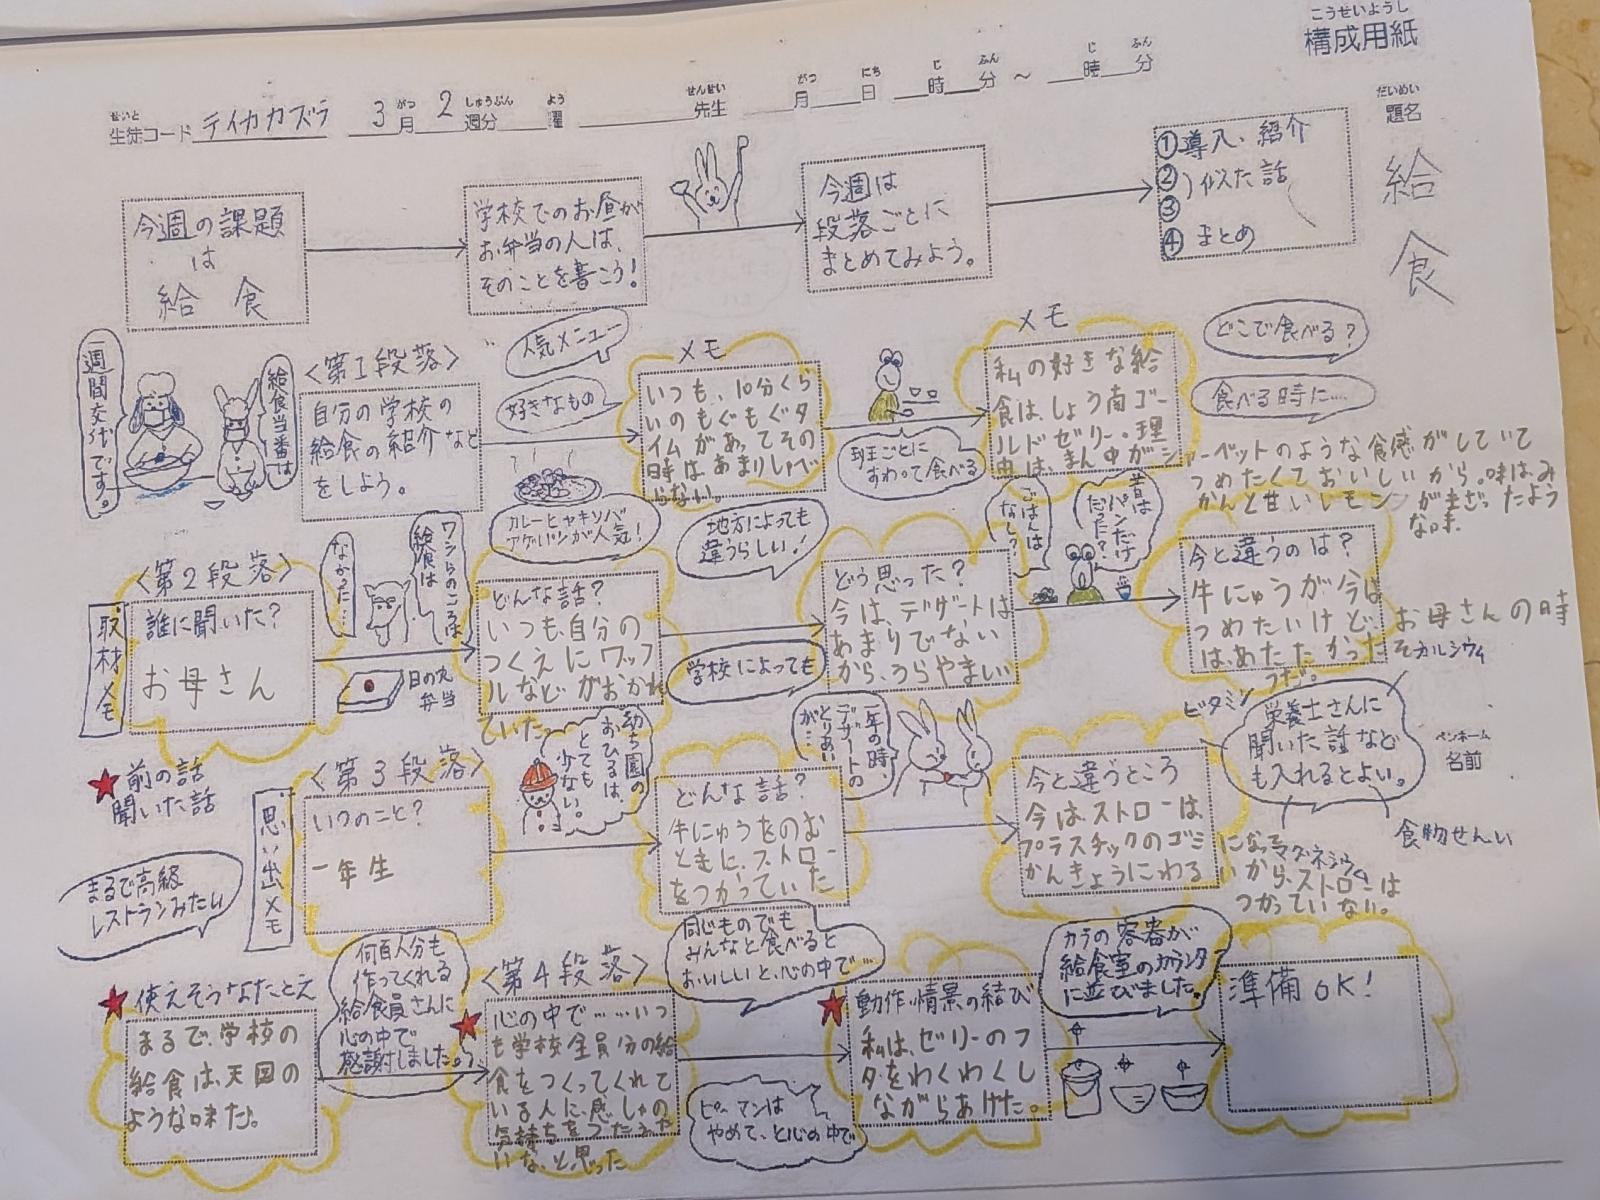 こうせいようし
構成用紙
せいと がつ しゅうぶん よう せんせい がつ にち じ ふん じ ふん
生徒コード テイカカズラ 3月 2週分 曜 先生 月 日 時 分 ～ 時 分
だいめい
題名
給食
今週の課題
は
給食
学校でのお昼が
お弁当の人は、
そのことを書こう!
今週は
段落ごとに
まとめてみよう。
①導入、紹介
②
③
)似た話
④まとめ
一週間交代です。
給食当番は
〈第1段落〉
自分の学校の
給食の紹介など
をしよう。
人気メニュー
好きなもの
カレーとヤキソバ
アゲパンが人気!
メモ
いつも、10分くら
いのもぐもぐタ
イムがあってその
時は、あまりしゃべ
らない。
班ごとに
すわって食べる
メモ
私の好きな給
食は、しょう南ゴー
ルドゼリー。理
由は、まん中がシ
ャーベットのような食感がしていて
つめたくておいしいから。味は、み
かんと甘いレモンが まざったよう
な味
どこで食べる?
食べる時に…
〈第2段落〉
取材メモ
誰に聞いた?
お母さん
なかった…
ワシらのころは
給食は
日の丸
弁当
どんな話?
いつも、自分の
つくえにワッフ
ルなどがおかれ
ていた
地方によっても
違うらしい!
学校によっても
どう思った?
今は、デザートは
あまりでない
から、うらやましい
ごはんは
なし?
昔は
パンだけ
だった?
今と違うのは?
牛にゅうが今は
つめたいけど、お母さんの時
は、あたたかったそ
うだ。
カルシウム
ビタミン
栄養士さんに
聞いた話など
も入れるとよい。
マグネシウム
食物せんい
ペンネーム
名前
★前の話
聞いた話
〈第3段落〉
思い出メモ
いつのこと?
一年生
幼ち園の
おひるは、
とても
少ない。
どんな話?
牛にゅうをのむ
ときに、ストロー
をつかっていた
一年の時、
デザートの
とりあい
が…
今と違うところ
今はストローは、
プラスチックのゴミ
かんきょうにわる
いから、ストローは
つかっていない。
まるで高級
レストランみたい
★使えそうなたとえ
まるで、学校の
給食は、天国の
ような味だ。
何百人分も
作ってくれる
給食員さんに
心の中で
感謝しました。
〈第4段落〉
★心の中で……いつ
も学校全員分の給
食をつくってくれて
いる人に、感しゃの
気持ちをつたえた
いな、と思った
同じものでも
みんなと食べると
おいしいと、心の中で…
ピーマンは
やめて、と心の中で
★動作・情景の結び
私は、ゼリーのフ
タをわくわくし
ながらあけた。
カラの容器が
給食室のカウンタ
に並びました。
準備OK!